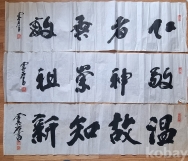 仁者無敵
敬神崇祖
溫故知新
kobay